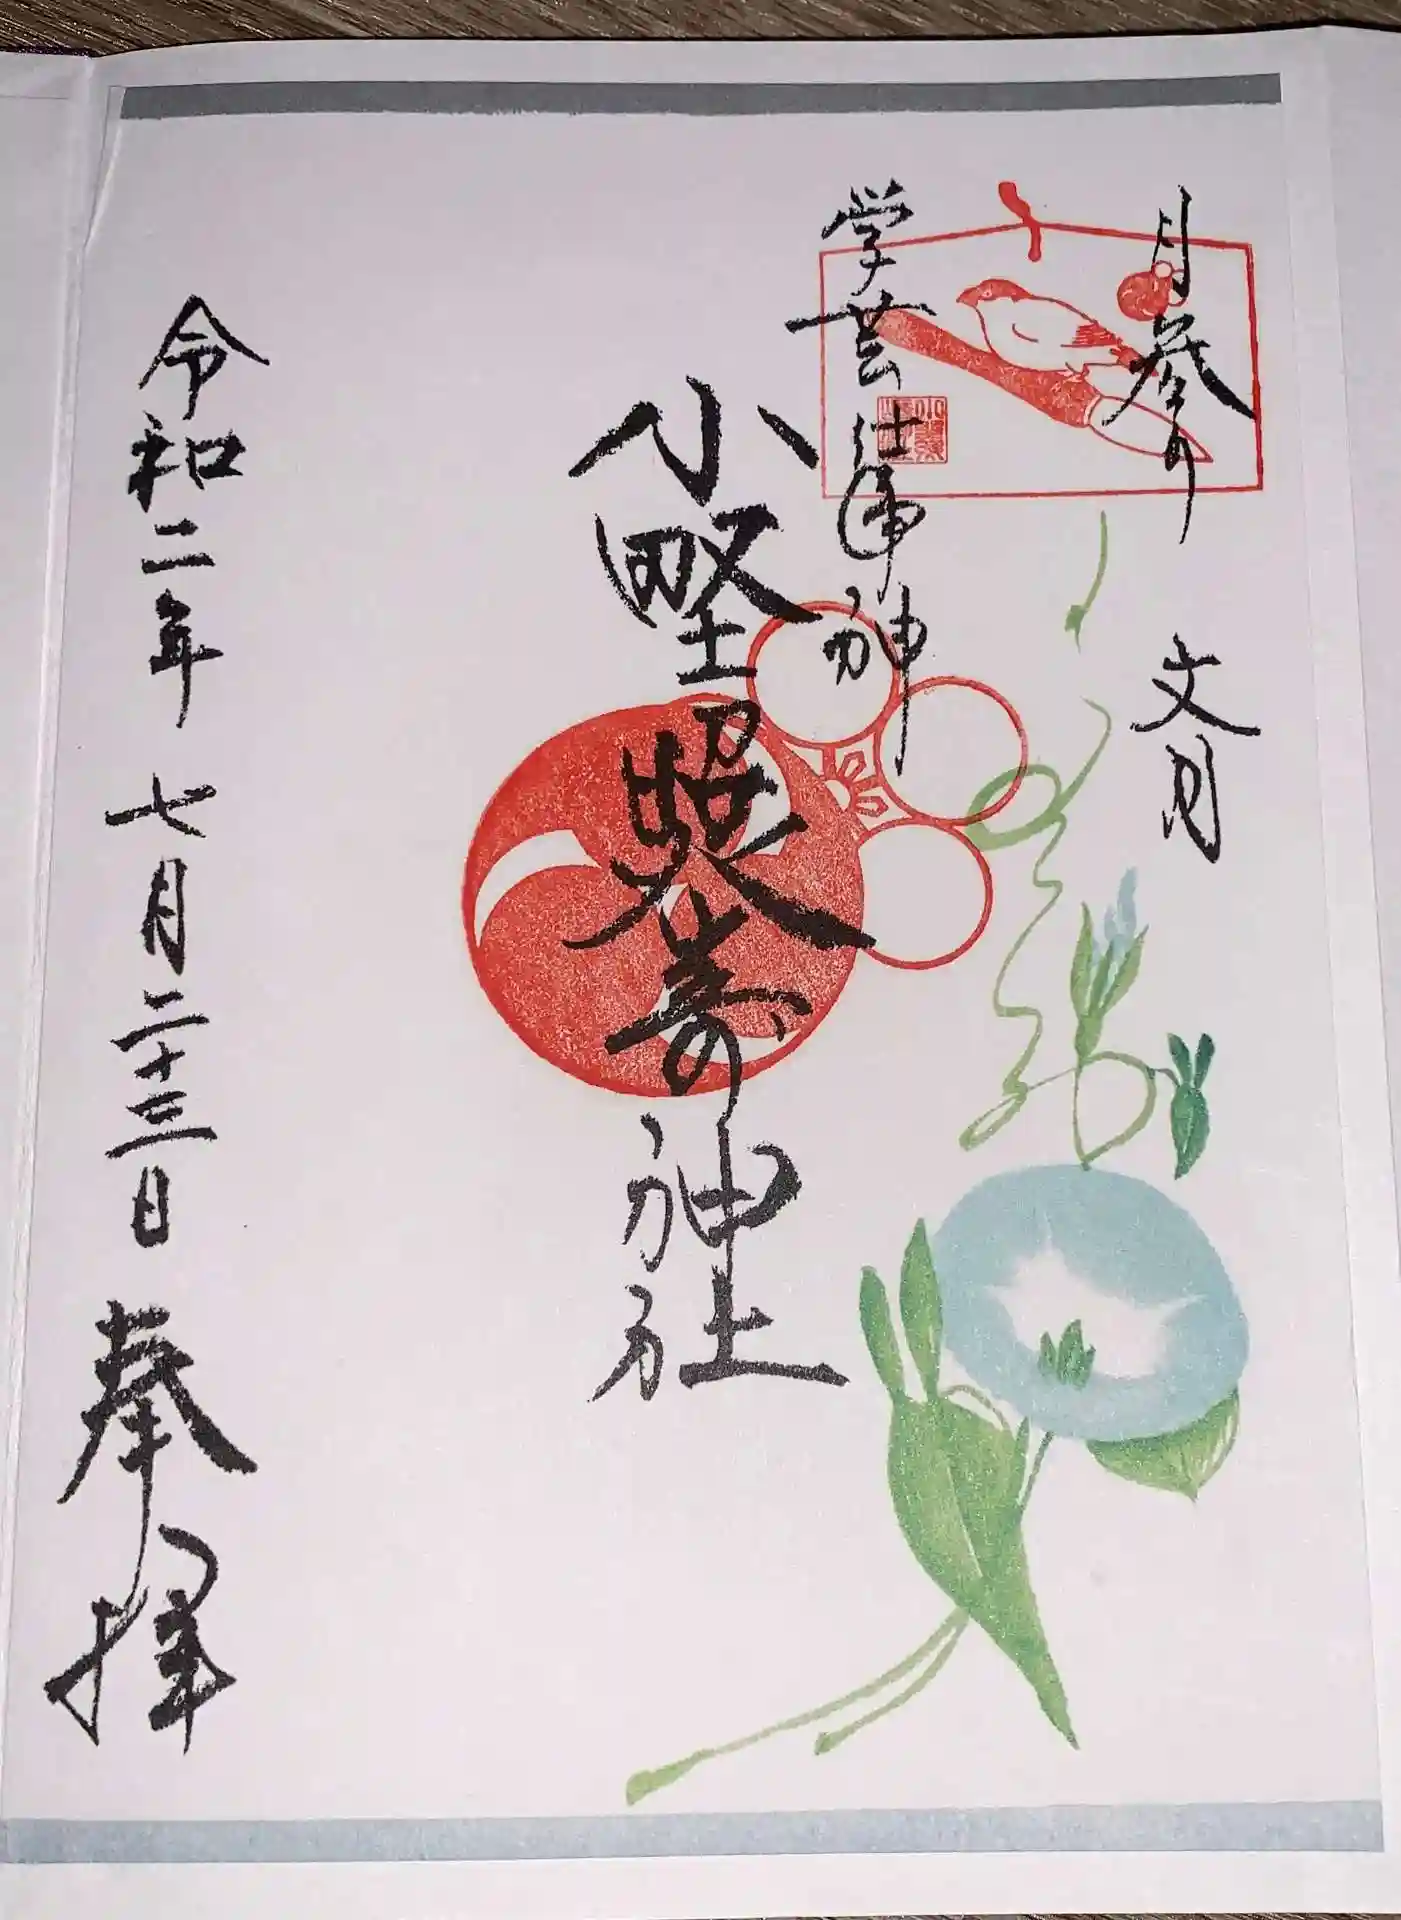 月参り 文月
学芸仕事神
小野照嵜神社
令和二年 七月二十三日 奉拝